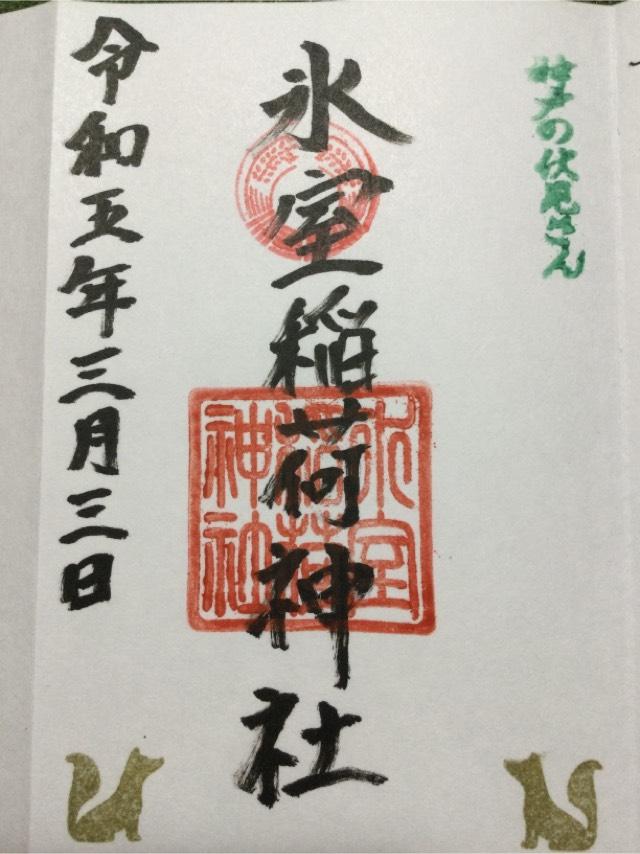 神戸の伏見さん
氷室稲荷神社
氷室
稲荷
神社
令和五年三月三日